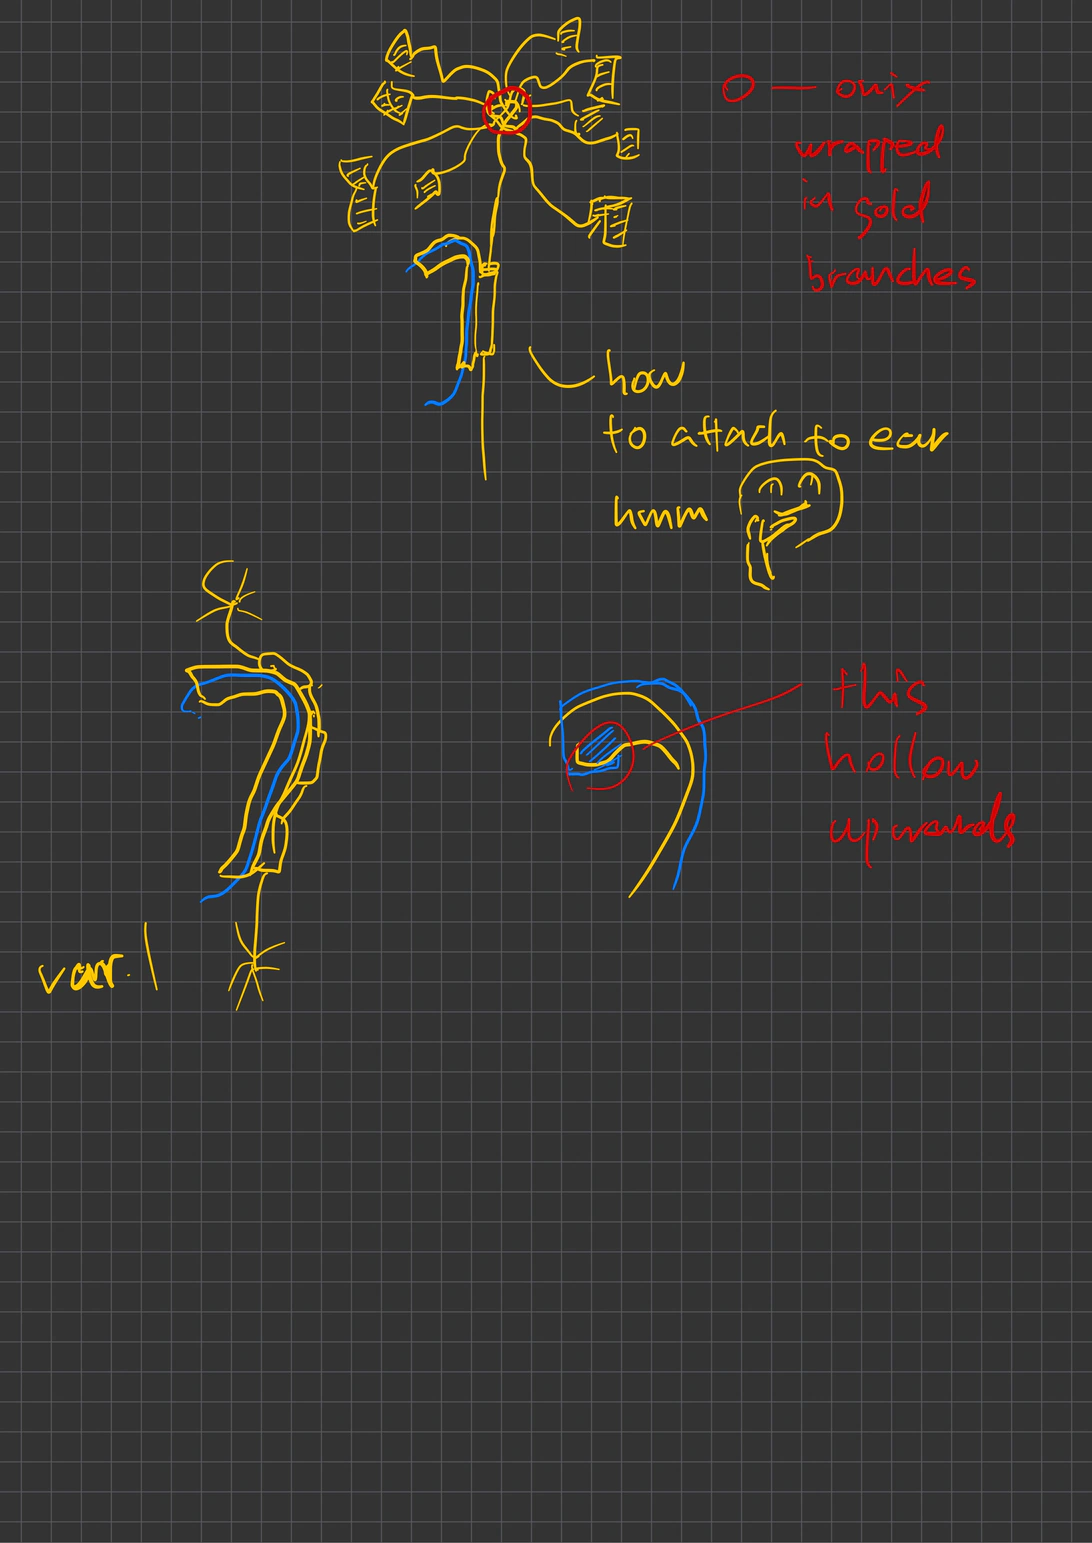 O — onix
wrapped
in gold
branches
how
to attach to ear
hmm
this
hollow
upwards
var. 1